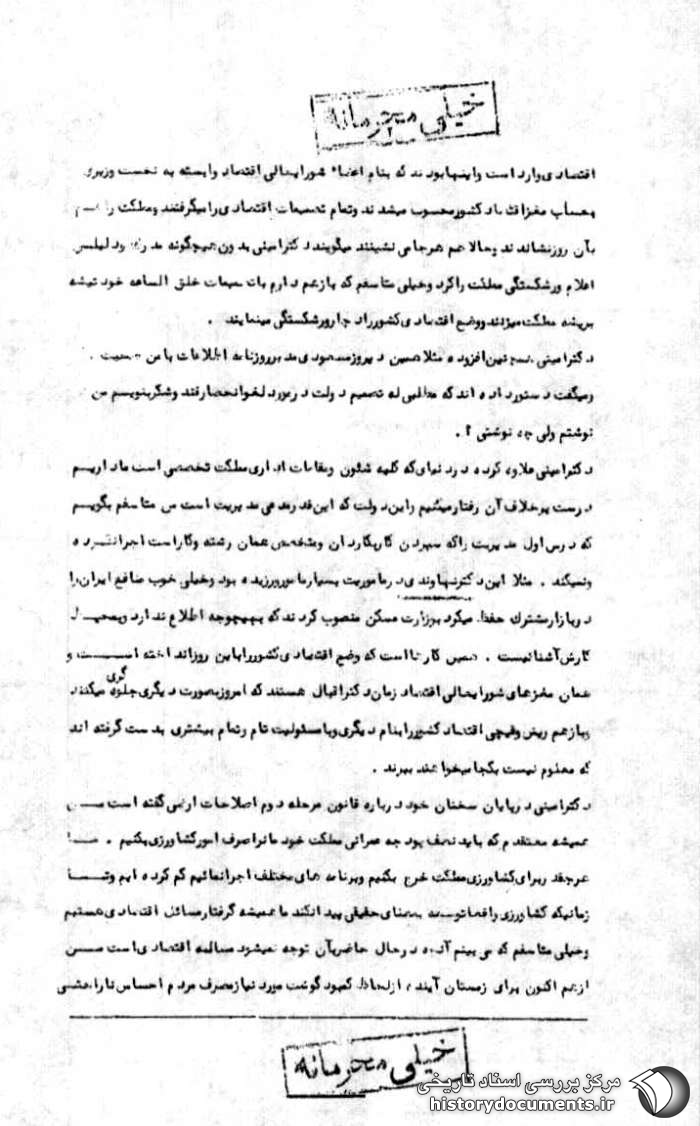 خیلی محرمانه
اقتصادی وارد است و اینها بودند که بنام اعضاء شورایعالی اقتصاد وابسته به نخست وزیری
بحساب مغز اقتصاد کشور محسوب میشدند و تمام تصمیمات اقتصادی را میگرفتند و مملکت را
بآن روز نشاندند و حالا هم هر جا می نشینند میگویند دکتر امینی بدون هیچگونه مدرک و دلیلی
اعلام ورشکستگی مملکت را کرد و خیلی متاسفم که باز هم دارم با تصمیمات خلق الساعه خود تیشه
بریشه مملکت میزنند و وضع اقتصادی کشور را دچار ورشکستگی مینمایند .
دکتر امینی همچنین افزوده مثلا همین دیروز مسعودی مدیر روزنامه اطلاعات با من صحبت
و میگفت دستور داده اند که مطلبی له تصمیم دولت در مورد لغو انحصار قند و شکر بنویسم من
نوشتم ولی چه نوشتنی ؟ .
دکتر امینی علاوه کرده در دنیای که کلیه شئون و مقامات اداری مملکت تخصصی است ما داریم
درست بر خلاف آن رفتار میکنیم و این دولت که این قدر مدعی مدیریت است من متاسفم بگویم
که درس اول مدیریت را که سپردن کار بکاردان و متخصص همان رشته و کار است اجرا نکرده
و نمیکند . مثلا این دکتر نهاوندی در ماموریت بسیار ماهر ورزیده بود و خیلی خوب منافع ایران را
در بازار مشترک حفظ میکرد بوزارت مسکن منصوب کردند که بهیچوجه اطلاع ندارد و بمحیط
کارش آشنا نیست . همین کارها است که وضع اقتصادی کشور را باین روز انداخته است و
همان مغزهای شورایعالی اقتصاد زمان دکتر اقبال هستند که امروز بصورت دیگری جلوه گری میکنند
و باز هم ریش و قیچی اقتصاد کشور را بنام دیگری و با مسئولیت تام و تمام بیشتری بدست گرفته اند
که معلوم نیست بکجا میخواهند ببرند .
دکتر امینی در پایان سخنان خود درباره قانون مرحله دوم اصلاحات ارضی گفته است من
همیشه معتقدم که باید نصف بودجه عمرانی مملکت خودمان را صرف امور کشاورزی بکنیم . ما
هر چقدر برای کشاورزی مملکت خرج بکنیم و برنامه های مختلف اجرا نمائیم کم کرده ایم و تا
زمانیکه کشاورزی واقعا توسعه بمعنای حقیقی پیدا نکند ما همیشه گرفتار مسائل اقتصادی هستیم
و خیلی متاسفم که می بینم آنچه در حال حاضر بآن توجه نمیشود مساله اقتصادی است من
از هم اکنون برای زمستان آینده از لحاظ کمبود گوشت مورد نیاز مصرف مردم احساس ناراحتی
خیلی محرمانه
مرکز بررسی اسناد تاریخی
historydocuments.ir